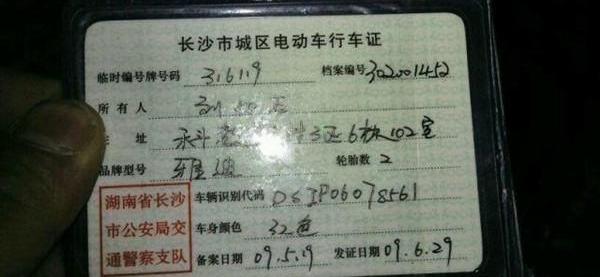 长沙市城区电动车行车证
临时编号牌号码 31619 档案编号 302001452
所有人
住址 6栋102室
品牌型号 雅迪 轮胎数 2
湖南省长沙市公安局交通警察支队
车辆识别代码 DSIP06078561
车身颜色 红色
备案日期 09.5.19 发证日期 09.6.29